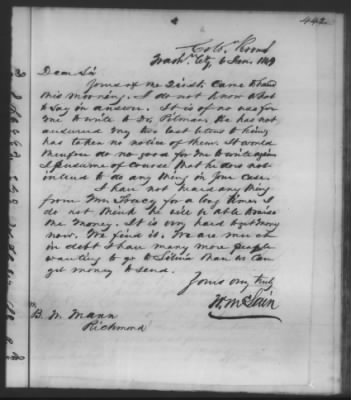 442
Colo. Rooms
Wash. City, 6 Jan. 1849
Dear Sir
Yours of the came to hand
this morning. I do not know what
to say in answer. It is of no use for
me to write to Dr. He has not
answered my two last letters to him,
has taken no notice of them. It would
therefore do no good for me to write again
I presume of course that he does not
intend to do any thing in your case.
I have not heard any thing
from Mrs. Tracy for a long time. I
do not think he will be able to raise
the money. It is very hard to get money
now. We find it. We are much
in debt & have many more people
wanting to go to Liberia than we can
get money to send.
Yours very truly
W. McLain
B. M. Mann
Richmond